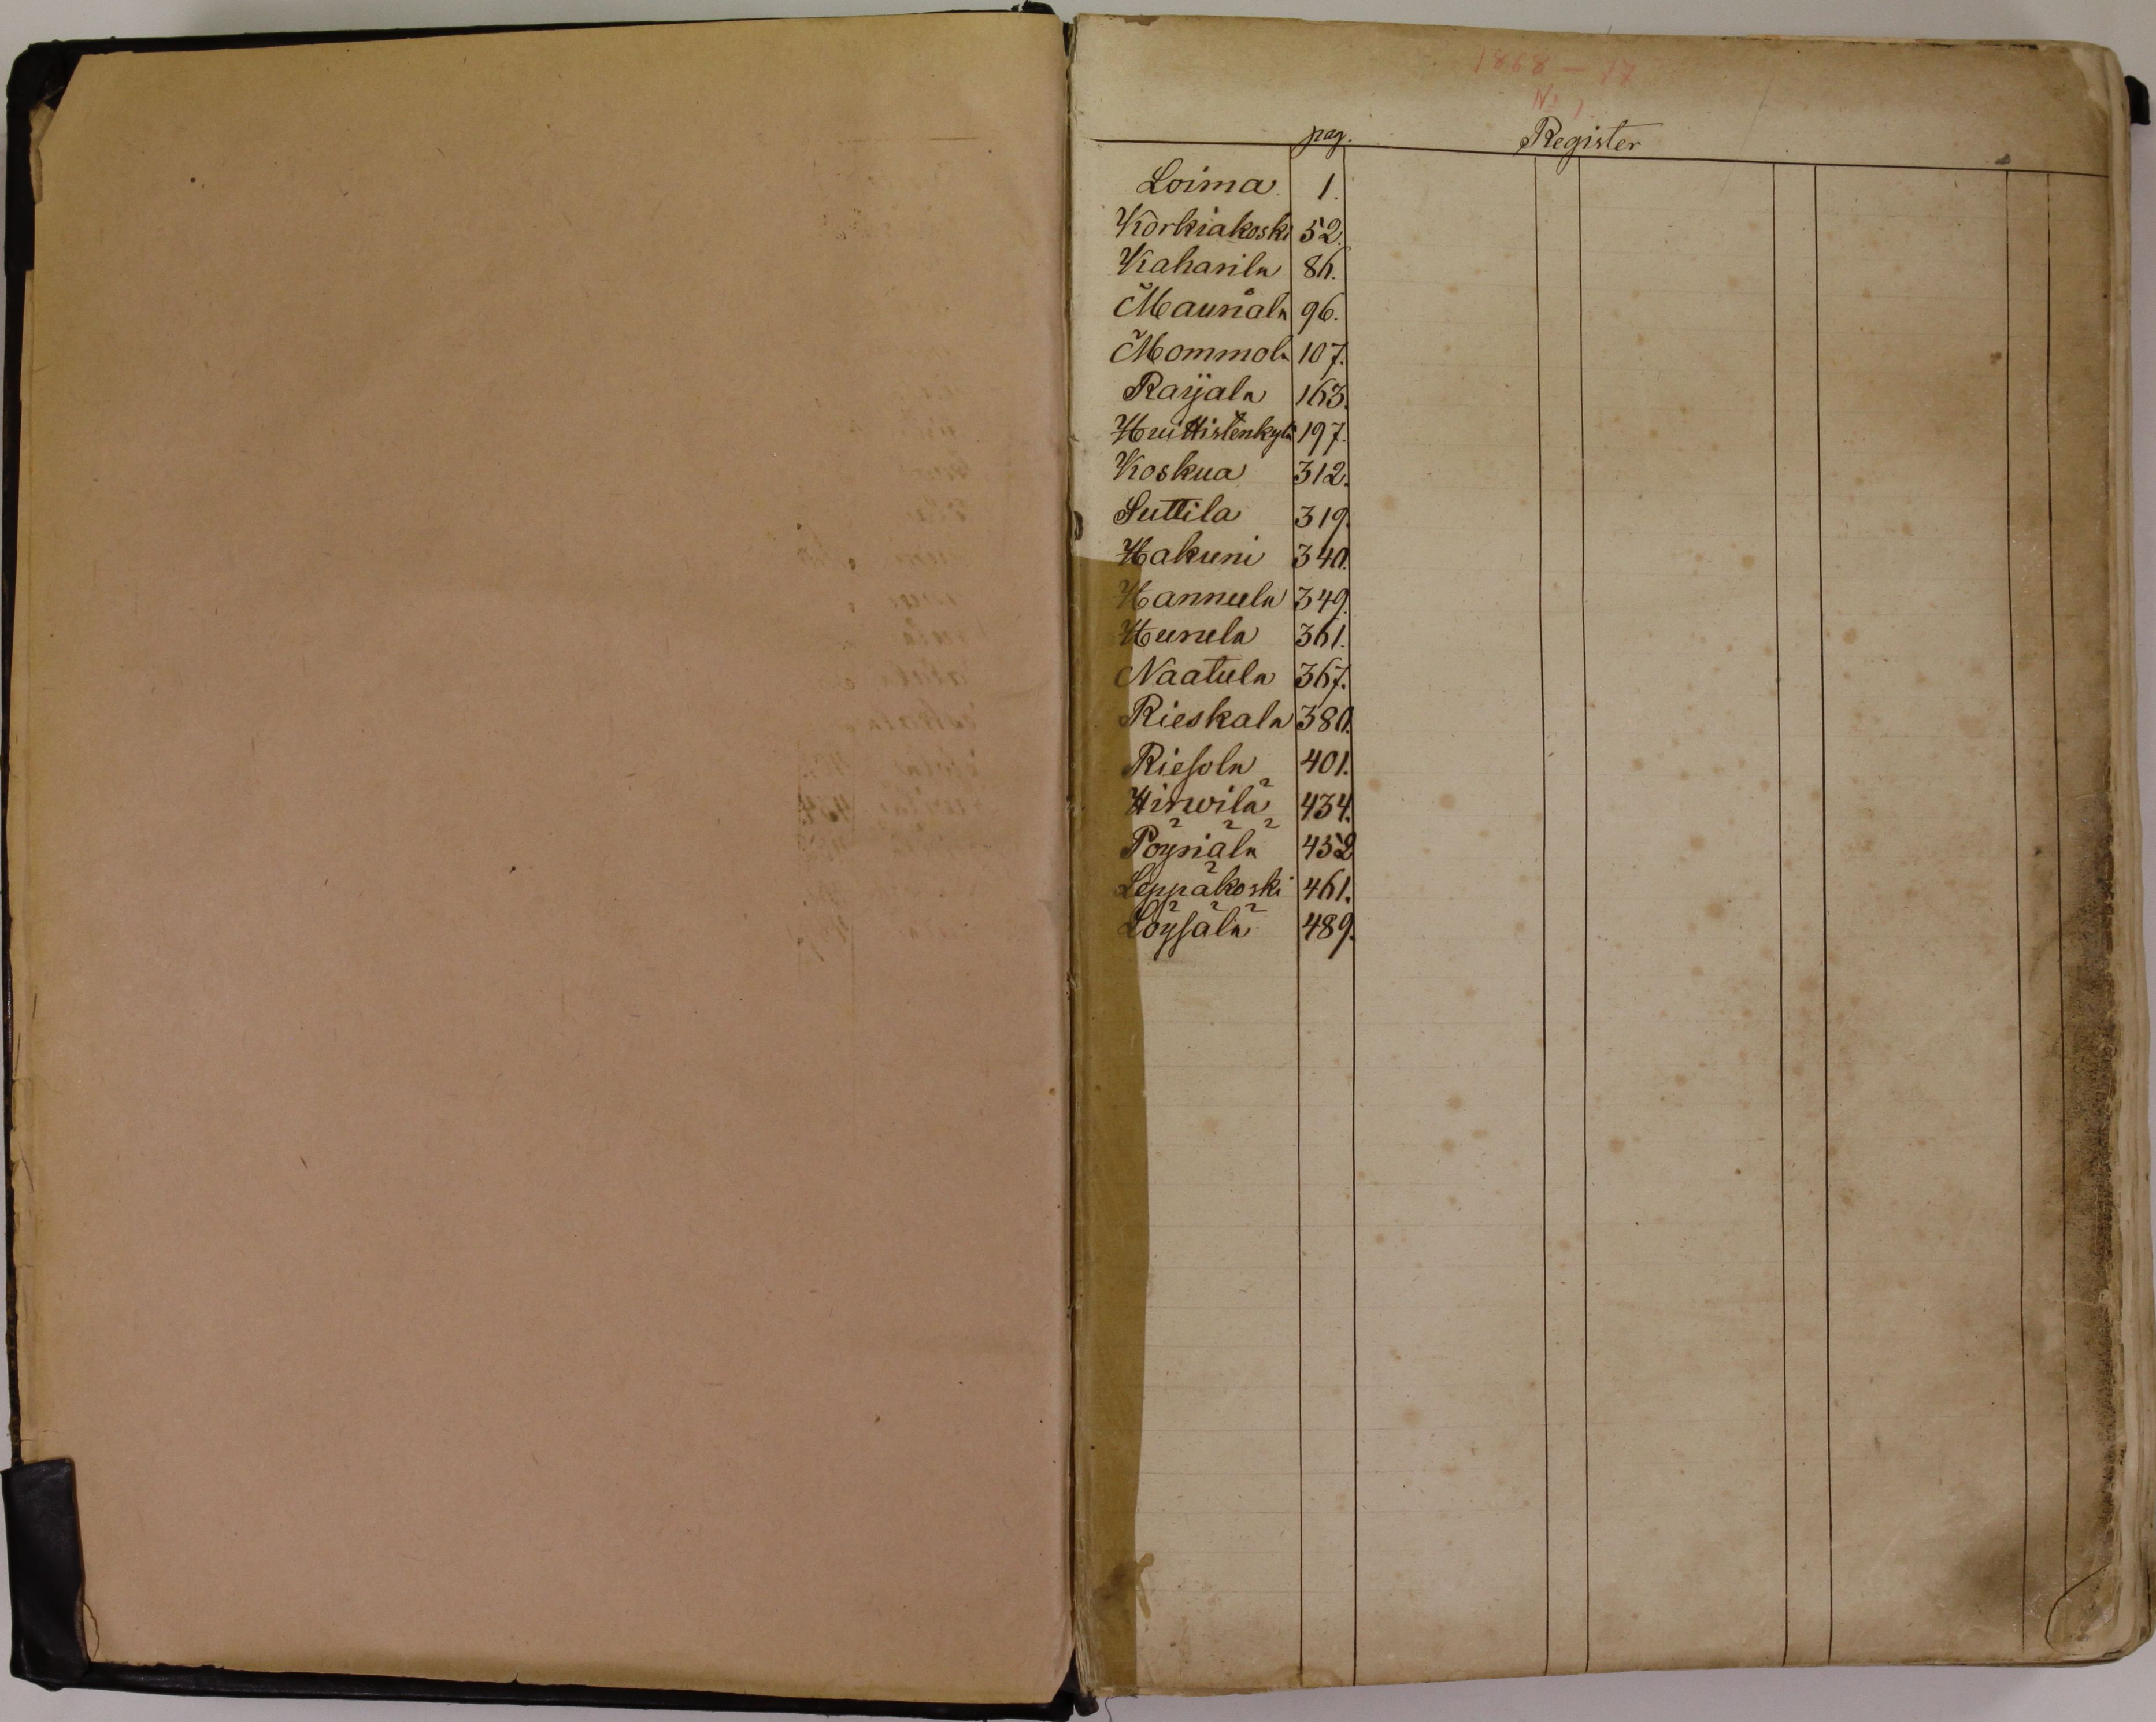 1868 – 17
No 1
pag. Register
Loima 1.
Korkiakoski 52.
Kaharila 86.
Mauriala 96.
Mommola 107.
Raijala 163.
Huittistenkylä 197.
Koskua 312.
Suttila 319.
Hakuni 340.
Hannula 349.
Hunula 361.
Naatula 367.
Rieskala 380.
Riesola 401.
Hirwilä 434.
Pöyriälä 452
Leppäkoski 461.
Löysälä 489.